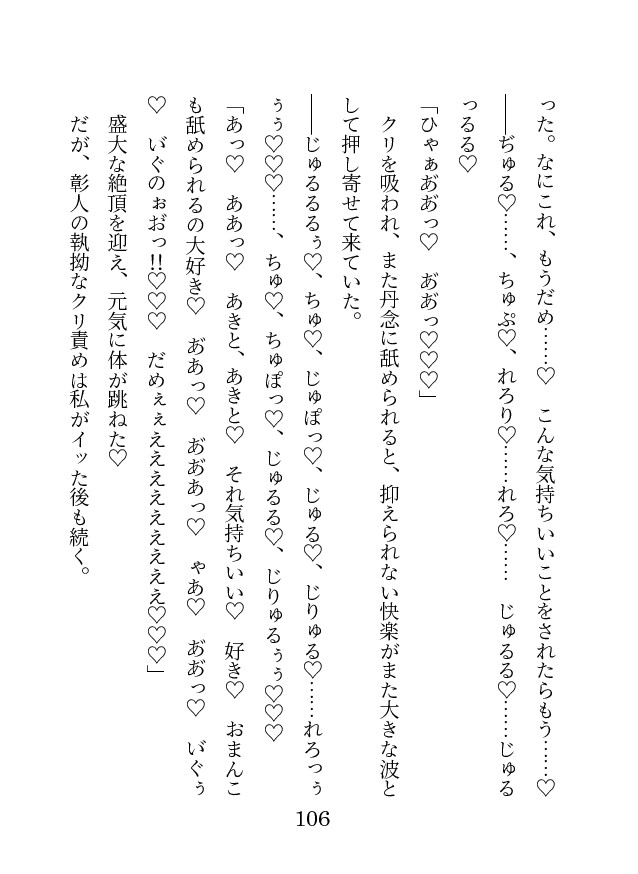 った。なにこれ、もうだめ……♡　こんな気持ちいいことをされたらもう……♡
――ぢゅる♡……、ちゅぷ♡、れろり♡……れろ♡……　じゅるる♡……じゅる
っるる♡
「ひゃぁあ゙あ゙っ♡　あ゙あ゙っ♡♡♡」
　クリを吸われ、また丹念に舐められると、抑えられない快楽がまた大きな波と
して押し寄せて来ていた。
――じゅるるるぅ♡、ちゅ♡、じゅぽっ♡、じゅる♡、じりゅる♡……れろっぅ
ぅぅ♡♡♡……、ちゅ♡、ちゅぽっ♡、じゅるる♡、じりゅるぅぅ♡♡♡
「あっ♡　ああっ♡　あきと、あきと♡　それ気持ちいい♡　好き♡　おまんこ
も舐められるの大好き♡　あ゙あっ♡　あ゙あ゙あっ♡　ゃあ♡　あ゙あ゙っ♡　い゙ぐぅ
♡　い゙ぐのぉお゙っ!!♡♡♡　だめぇぇええええええええ♡♡♡」
　盛大な絶頂を迎え、元気に体が跳ねた♡
　だが、彰人の執拗なクリ責めは私がイッた後も続く。
106